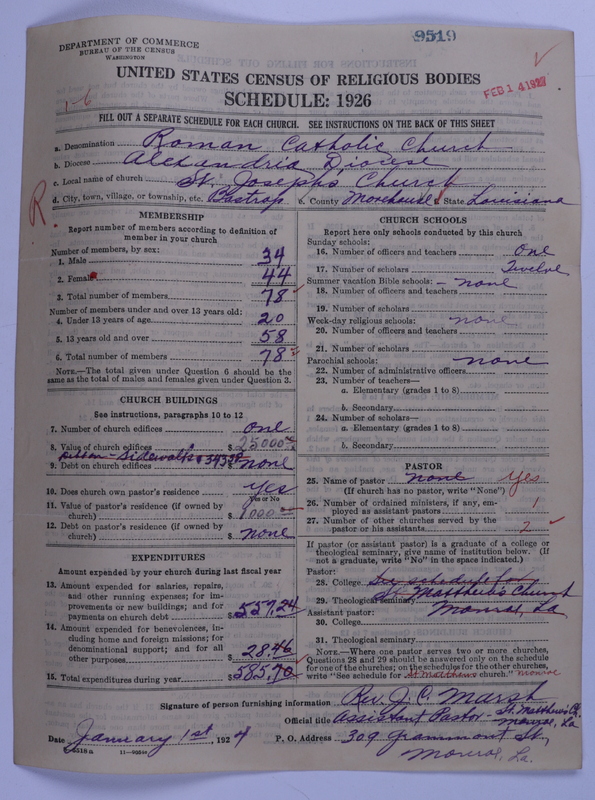 9519
DEPARTMENT OF COMMERCE
BUREAU OF THE CENSUS
WASHINGTON
UNITED STATES CENSUS OF RELIGIOUS BODIES
SCHEDULE: 1926
FEB 14 1927
1-6
FILL OUT A SEPARATE SCHEDULE FOR EACH CHURCH. SEE INSTRUCTIONS ON THE BACK OF THIS SHEET
a. Denomination Roman Catholic Church
b. Diocese Alexandria Diocese
c. Local name of church St. Josephs Church
d. City, town, village, or township, etc. Bastrop e. County Morehouse State Louisiana
R.
MEMBERSHIP
Report number of members according to definition of
member in your church
Number of members, by sex:
1. Male 34
2. Female 44
3. Total number of members 78
Number of members under and over 13 years old:
4. Under 13 years of age 20
5. 13 years old and over 58
6. Total number of members 78
NOTE.—The total given under Question 6 should be the
same as the total of males and females given under Question 3.
CHURCH BUILDINGS
See instructions, paragraphs 10 to 12
7. Number of church edifices One
8. Value of church edifices $ 25000
Sidewalks $
9. Debt on church edifices $ None
10. Does church own pastor's residence Yes
Yes or No
11. Value of pastor's residence (if owned by
church) $ 1,000
12. Debt on pastor's residence (if owned by
church) $ None
EXPENDITURES
Amount expended by your church during last fiscal year
13. Amount expended for salaries, repairs,
and other running expenses; for im-
provements or new buildings; and for
payments on church debt $ 557.24
14. Amount expended for benevolences, in-
cluding home and foreign missions; for
denominational support; and for all
other purposes $ 28.46
15. Total expenditures during year $ 585.70
CHURCH SCHOOLS
Report here only schools conducted by this church
Sunday schools:
16. Number of officers and teachers One
17. Number of scholars Twelve
Summer vacation Bible schools: - None
18. Number of officers and teachers
19. Number of scholars
Week-day religious schools: None
20. Number of officers and teachers
21. Number of scholars
Parochial schools: None
22. Number of administrative officers
23. Number of teachers—
a. Elementary (grades 1 to 8)
b. Secondary
24. Number of scholars—
a. Elementary (grades 1 to 8)
b. Secondary
PASTOR
25. Name of pastor None Yes
(If church has no pastor, write "None")
26. Number of ordained ministers, if any, em-
ployed as assistant pastors 1
27. Number of other churches served by the
pastor or his assistants 2
If pastor (or assistant pastor) is a graduate of a college or
theological seminary, give name of institution below. (If
not a graduate, write "No" in the space indicated.)
Pastor:
28. College See schedule for
29. Theological seminary St. Matthews Church
Assistant pastor: Monroe, La
30. College
31. Theological seminary
NOTE.—Where one pastor serves two or more churches,
Questions 28 and 29 should be answered only on the schedule
for one of the churches; on the schedules for the other churches,
write "See schedule for St. Matthews church" Monroe
Signature of person furnishing information Rev. J. C. Marsh
Official title Assistant Pastor - St. Matthews Ch.
Monroe, La
Date January 1st, 1924 P. O. Address 309 Grammont St,
Monroe, La.